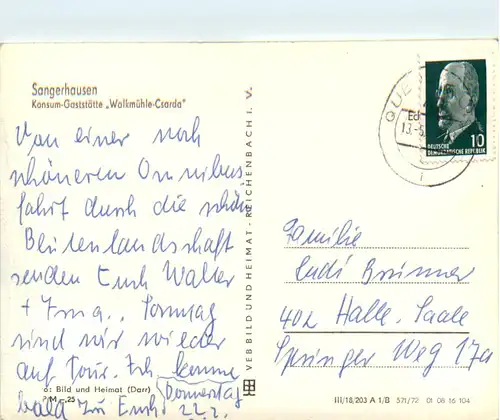 Sangerhausen
Konsum-Gaststätte „Walkmühle-Csarda"
Von einer noch
schöneren Omnibus
fahrt durch die schöne
Blütenlandschaft
senden Euch Walter
+ Irma. Sonntag
sind wir wieder
auf Tour. Ich komme
Donnerstag
bald zu Euch 22.2.
Foto: Bild und Heimat (Darr)
M -,25
VEB BILD UND HEIMAT · REICHENBACH i. V.
QUE
13.-5.
DEUTSCHE
DEMOKRATISCHE REPUBLIK
10
Familie
Ludi Brünner
402 Halle-Saale
Springer Weg 17a
III/18/203 A 1/B 571/72 01 08 16 104